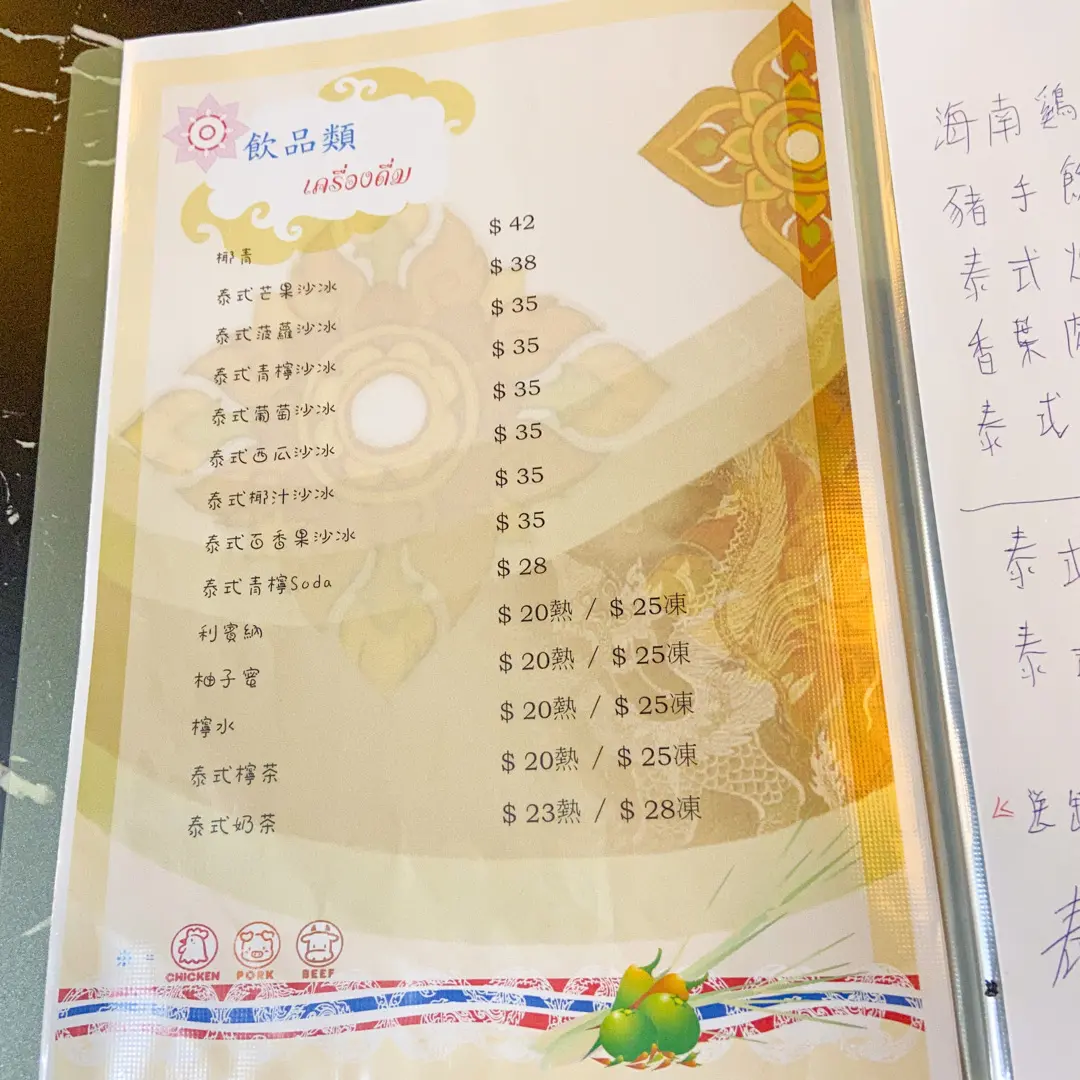 飲品類
เครื่องดื่ม
椰青 $ 42
泰式芒果沙冰 $ 38
泰式菠蘿沙冰 $ 35
泰式青檸沙冰 $ 35
泰式葡萄沙冰 $ 35
泰式西瓜沙冰 $ 35
泰式椰汁沙冰 $ 35
泰式百香果沙冰 $ 35
泰式青檸Soda $ 28
利賓納 $ 20熱 / $ 25凍
柚子蜜 $ 20熱 / $ 25凍
檸水 $ 20熱 / $ 25凍
泰式檸茶 $ 20熱 / $ 25凍
泰式奶茶 $ 23熱 / $ 28凍
CHICKEN PORK BEEF
海南鷄
豬手
泰式
香葉
泰式
泰式
泰
送